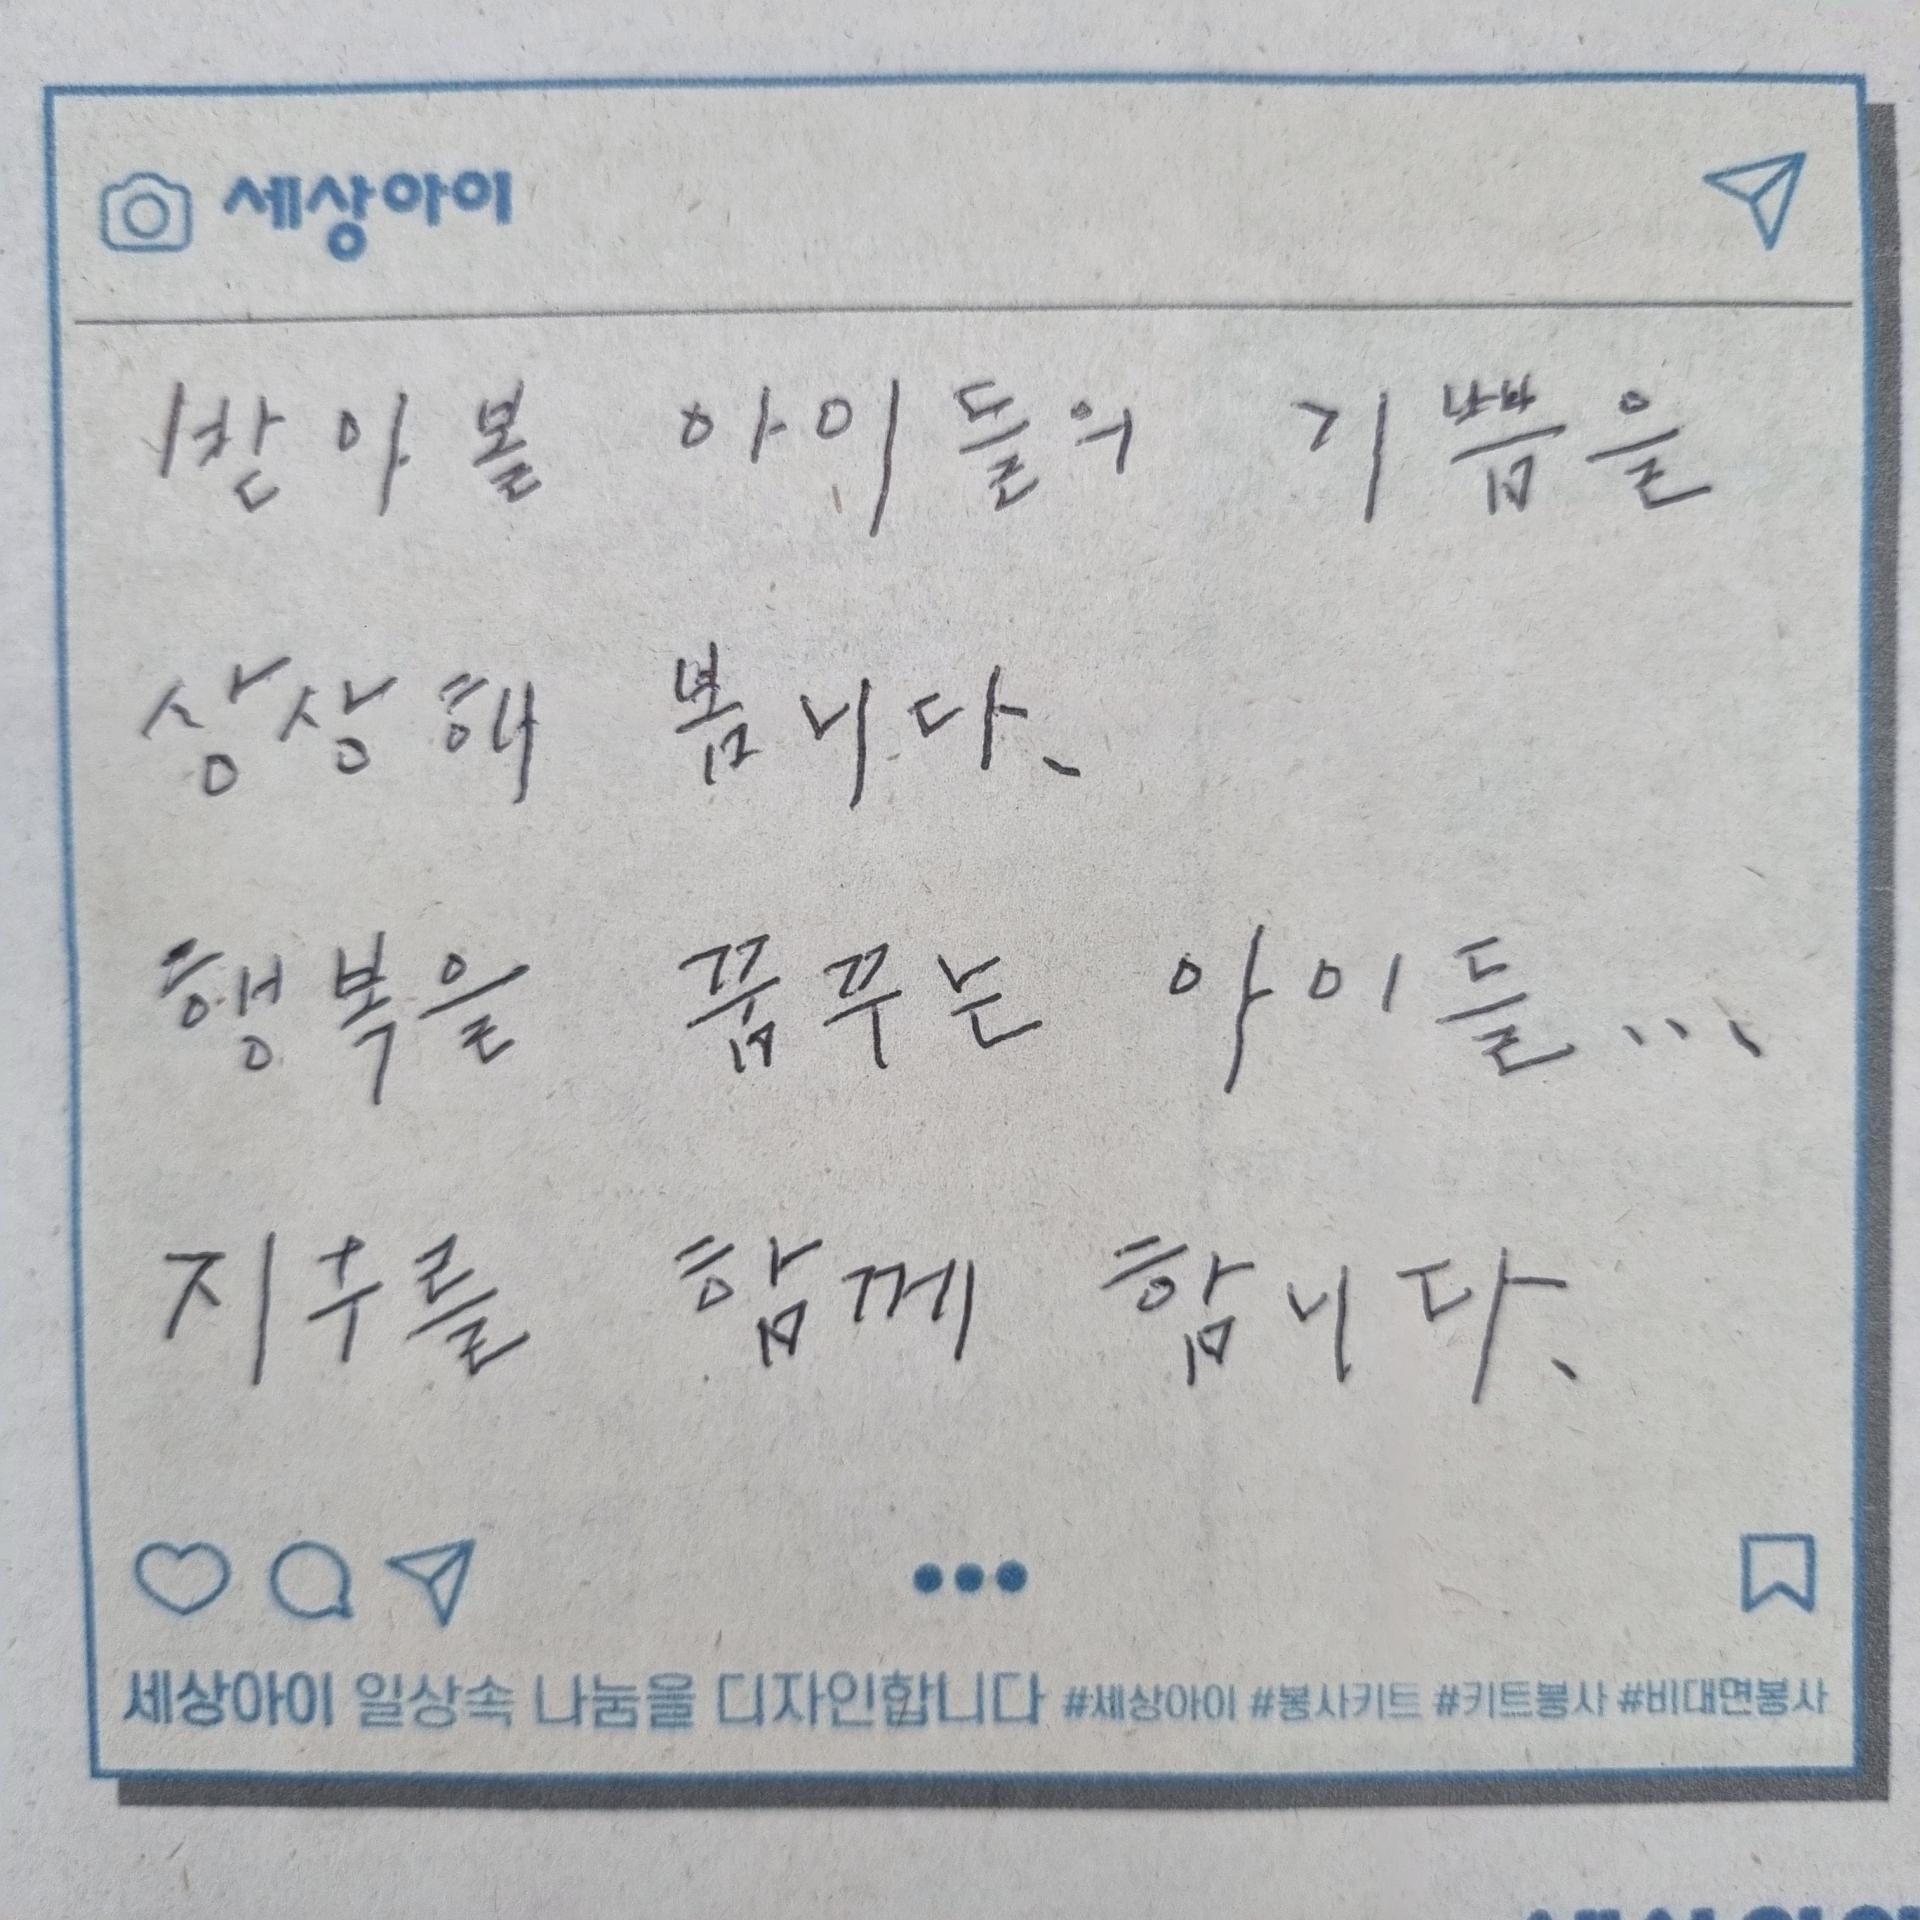 세상아이
받아볼 아이들의 기쁨을
상상해 봅니다.
행복을 꿈꾸는 아이들...
지우를 함께 합니다.
세상아이 일상속 나눔을 디자인합니다 #세상아이 #봉사키트 #키트봉사 #비대면봉사